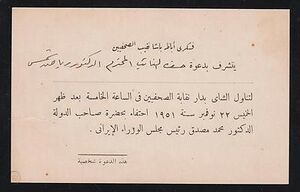 فكرى أباظه باشا نقيب الصحفيين
يتشرف بدعوة حضرة المحترم الدكتور
لتناول الشاى بدار نقابة الصحفيين فى الساعة الخامسة بعد ظهر
الخميس ٢٢ نوفمبر سنة ١٩٥١ احتفاء بحضرة صاحب الدولة
الدكتور محمد مصدق رئيس مجلس الوزراء الإيرانى .
هذه الدعوة شخصية